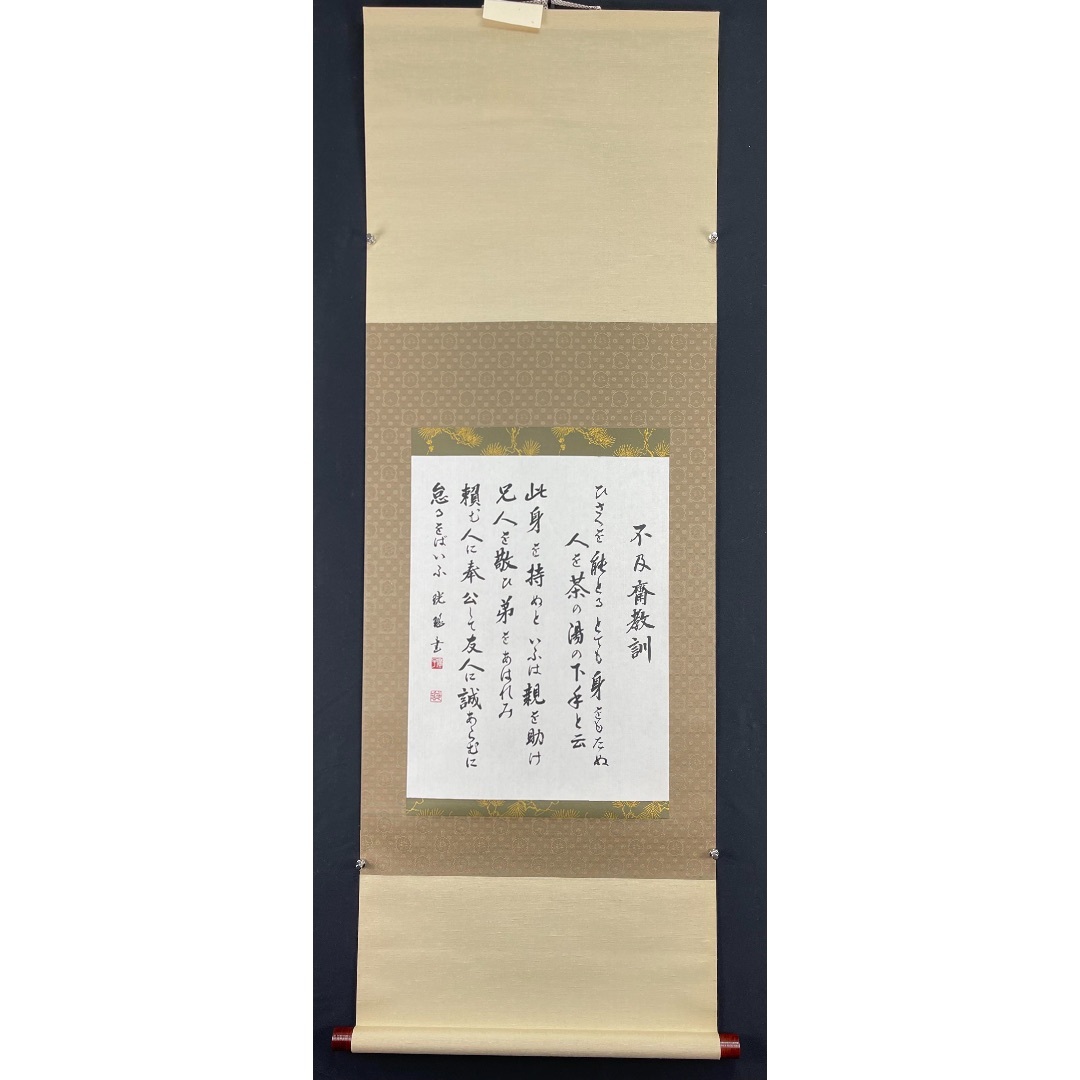 不及齋教訓
ひさくを能とるとても身をもたぬ
人を茶の湯の下手と云
此身を持ぬといふは親を助け
兄人を敬ひ弟をあはれみ
頼む人に奉公して友人に誠あらむに
怠るをばいふ 書